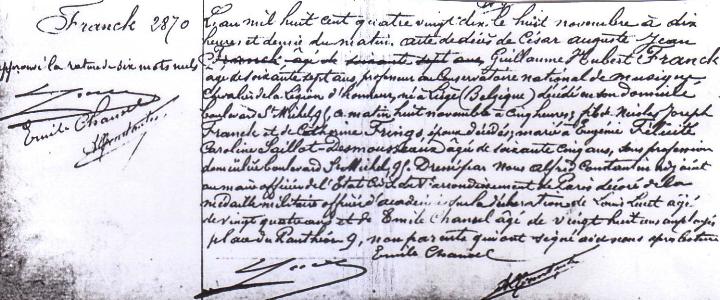 Franck 2870
approuvé la rature de six mots nuls
Emile Chansel
AConstantin
L'an mil huit cent quatre vingt dix, le huit novembre à dix
heures et demie du matin, acte de décès de César auguste Jean
Franck âgé de soixante sept ans Guillaume Hubert Franck
âgé de soixante sept ans, professeur au Conservatoire national de musique,
Chevalier de la Légion d'honneur, né à Liège (Belgique) décédé en son domicile
boulevard St Michel 95, ce matin huit novembre à cinq heures; fils de Nicolas Joseph
Franck et de Catherine Frings, époux décédés; marié à Eugénie Félicité
Caroline Saillot-Desmousseaux âgée de soixante cinq ans, sans profession
domiciliée boulevard St Michel, 95. Dressé par nous Alfred Constantin adjoint
au maire officier de l'Etat Civil du Ve arrondissement de Paris décoré de la
médaille militaire officier d'académie sur la déclaration de Louis agé
de vingt quatre ans et de Emile Chansel âgé de vingt huit ans employés,
place du Panthéon 9, non parents qui ont signé avec nous après lecture
Emile Chansel
AConstantin